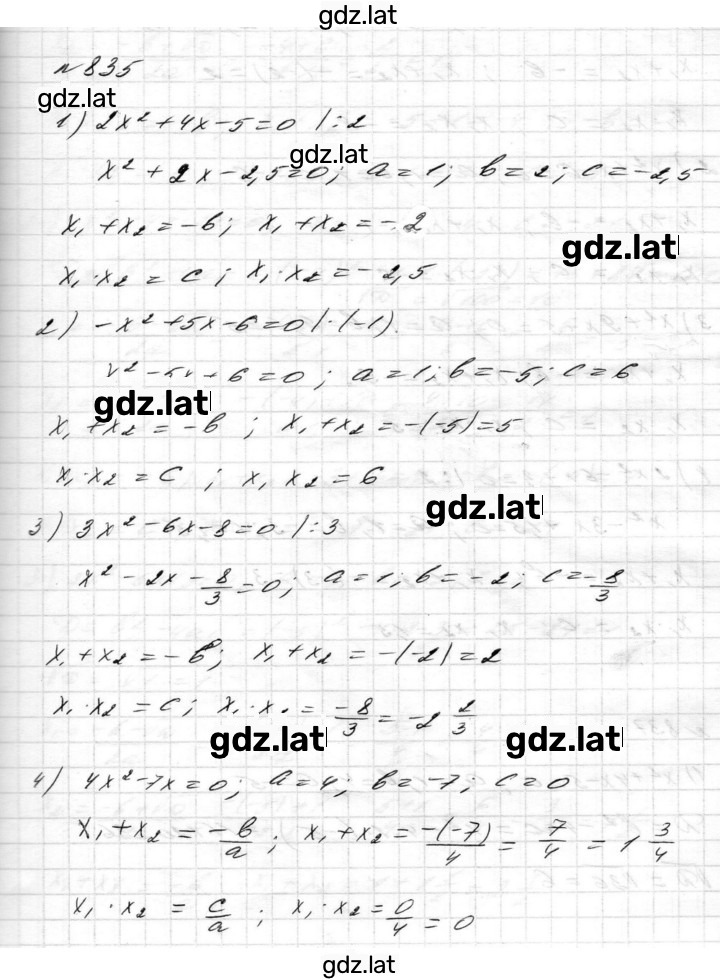 gdz.lat
№835
gdz.lat
1) 2x²+4x-5=0 |:2
gdz.lat
x²+2x-2,5=0; a=1; b=2; c=-2,5
x₁+x₂=-b; x₁+x₂=-2
gdz.lat
x₁·x₂=c; x₁·x₂=-2,5
2) -x²+5x-6=0 |·(-1)
x²-5x+6=0; a=1; b=-5; c=6
gdz.lat
x₁+x₂=-b; x₁+x₂=-(-5)=5
x₁·x₂=c; x₁ x₂=6
gdz.lat
3) 3x²-6x-8=0 |:3
x²-2x-8/3=0; a=1; b=-2; c=-8/3
x₁+x₂=-b; x₁+x₂=-(-2)=2
x₁·x₂=c; x₁·x₂=-8/3=-2 2/3
gdz.lat gdz.lat
4) 4x²-7x=0; a=4; b=-7; c=0
x₁+x₂=-b/a; x₁+x₂=-(-7)/4=7/4=1 3/4
x₁·x₂=c/a; x₁·x₂=0/4=0
gdz.lat